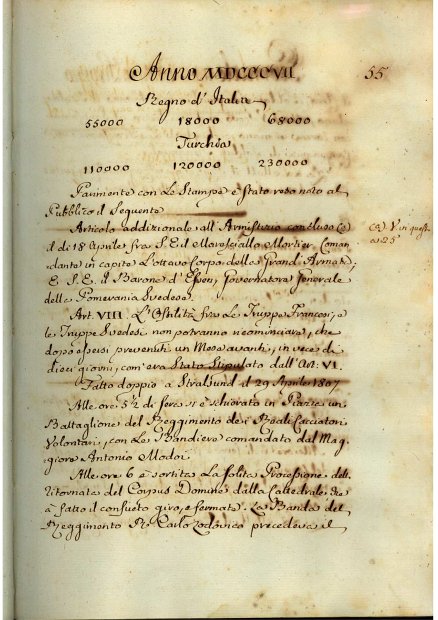 Anno MDCCCVII. 55
Regno d'Italia
55000 18000 68000
Turchia
110000 120000 230000
Parimente con Le Stampe è stato reso noto al
Pubblico il Seguente
Articolo addizionale all'Armistizio concluso
il dì 18 Aprile fra S. E. il Maresciallo Mortier Coman-
dante in capite L'ottavo Corpo della Grand'Armata
E S. E. il Barone d'Essen, Governatore Generale
della Pomerania Svedese.
Art. VIII. L'Ostilità fra Le Truppe Francesi, e
le Truppe Svedesi non potranno ricominciare, che
dopo essersi prevenuti un Mese avanti, in vece di
dieci giorni, com'era Stato Stipulato dall'Art. VI.
Fatto doppio a Stralsund il 29 Aprile 1807.
Alle ore 5½ di sera si è schierato in Piazza un
Battaglione del Reggimento dei Reali Cacciatori
Volontari, con Le Bandiere comandato dal Mag-
giore Antonio
Alle ore 6 è sortita La solita Processione dell'
Ritornata del Corpus Domini dalla Cattedrale, che
à fatto il consueto giro, e fermate. La Banda del
Reggimento R. Carlo Lodovico precedeva il